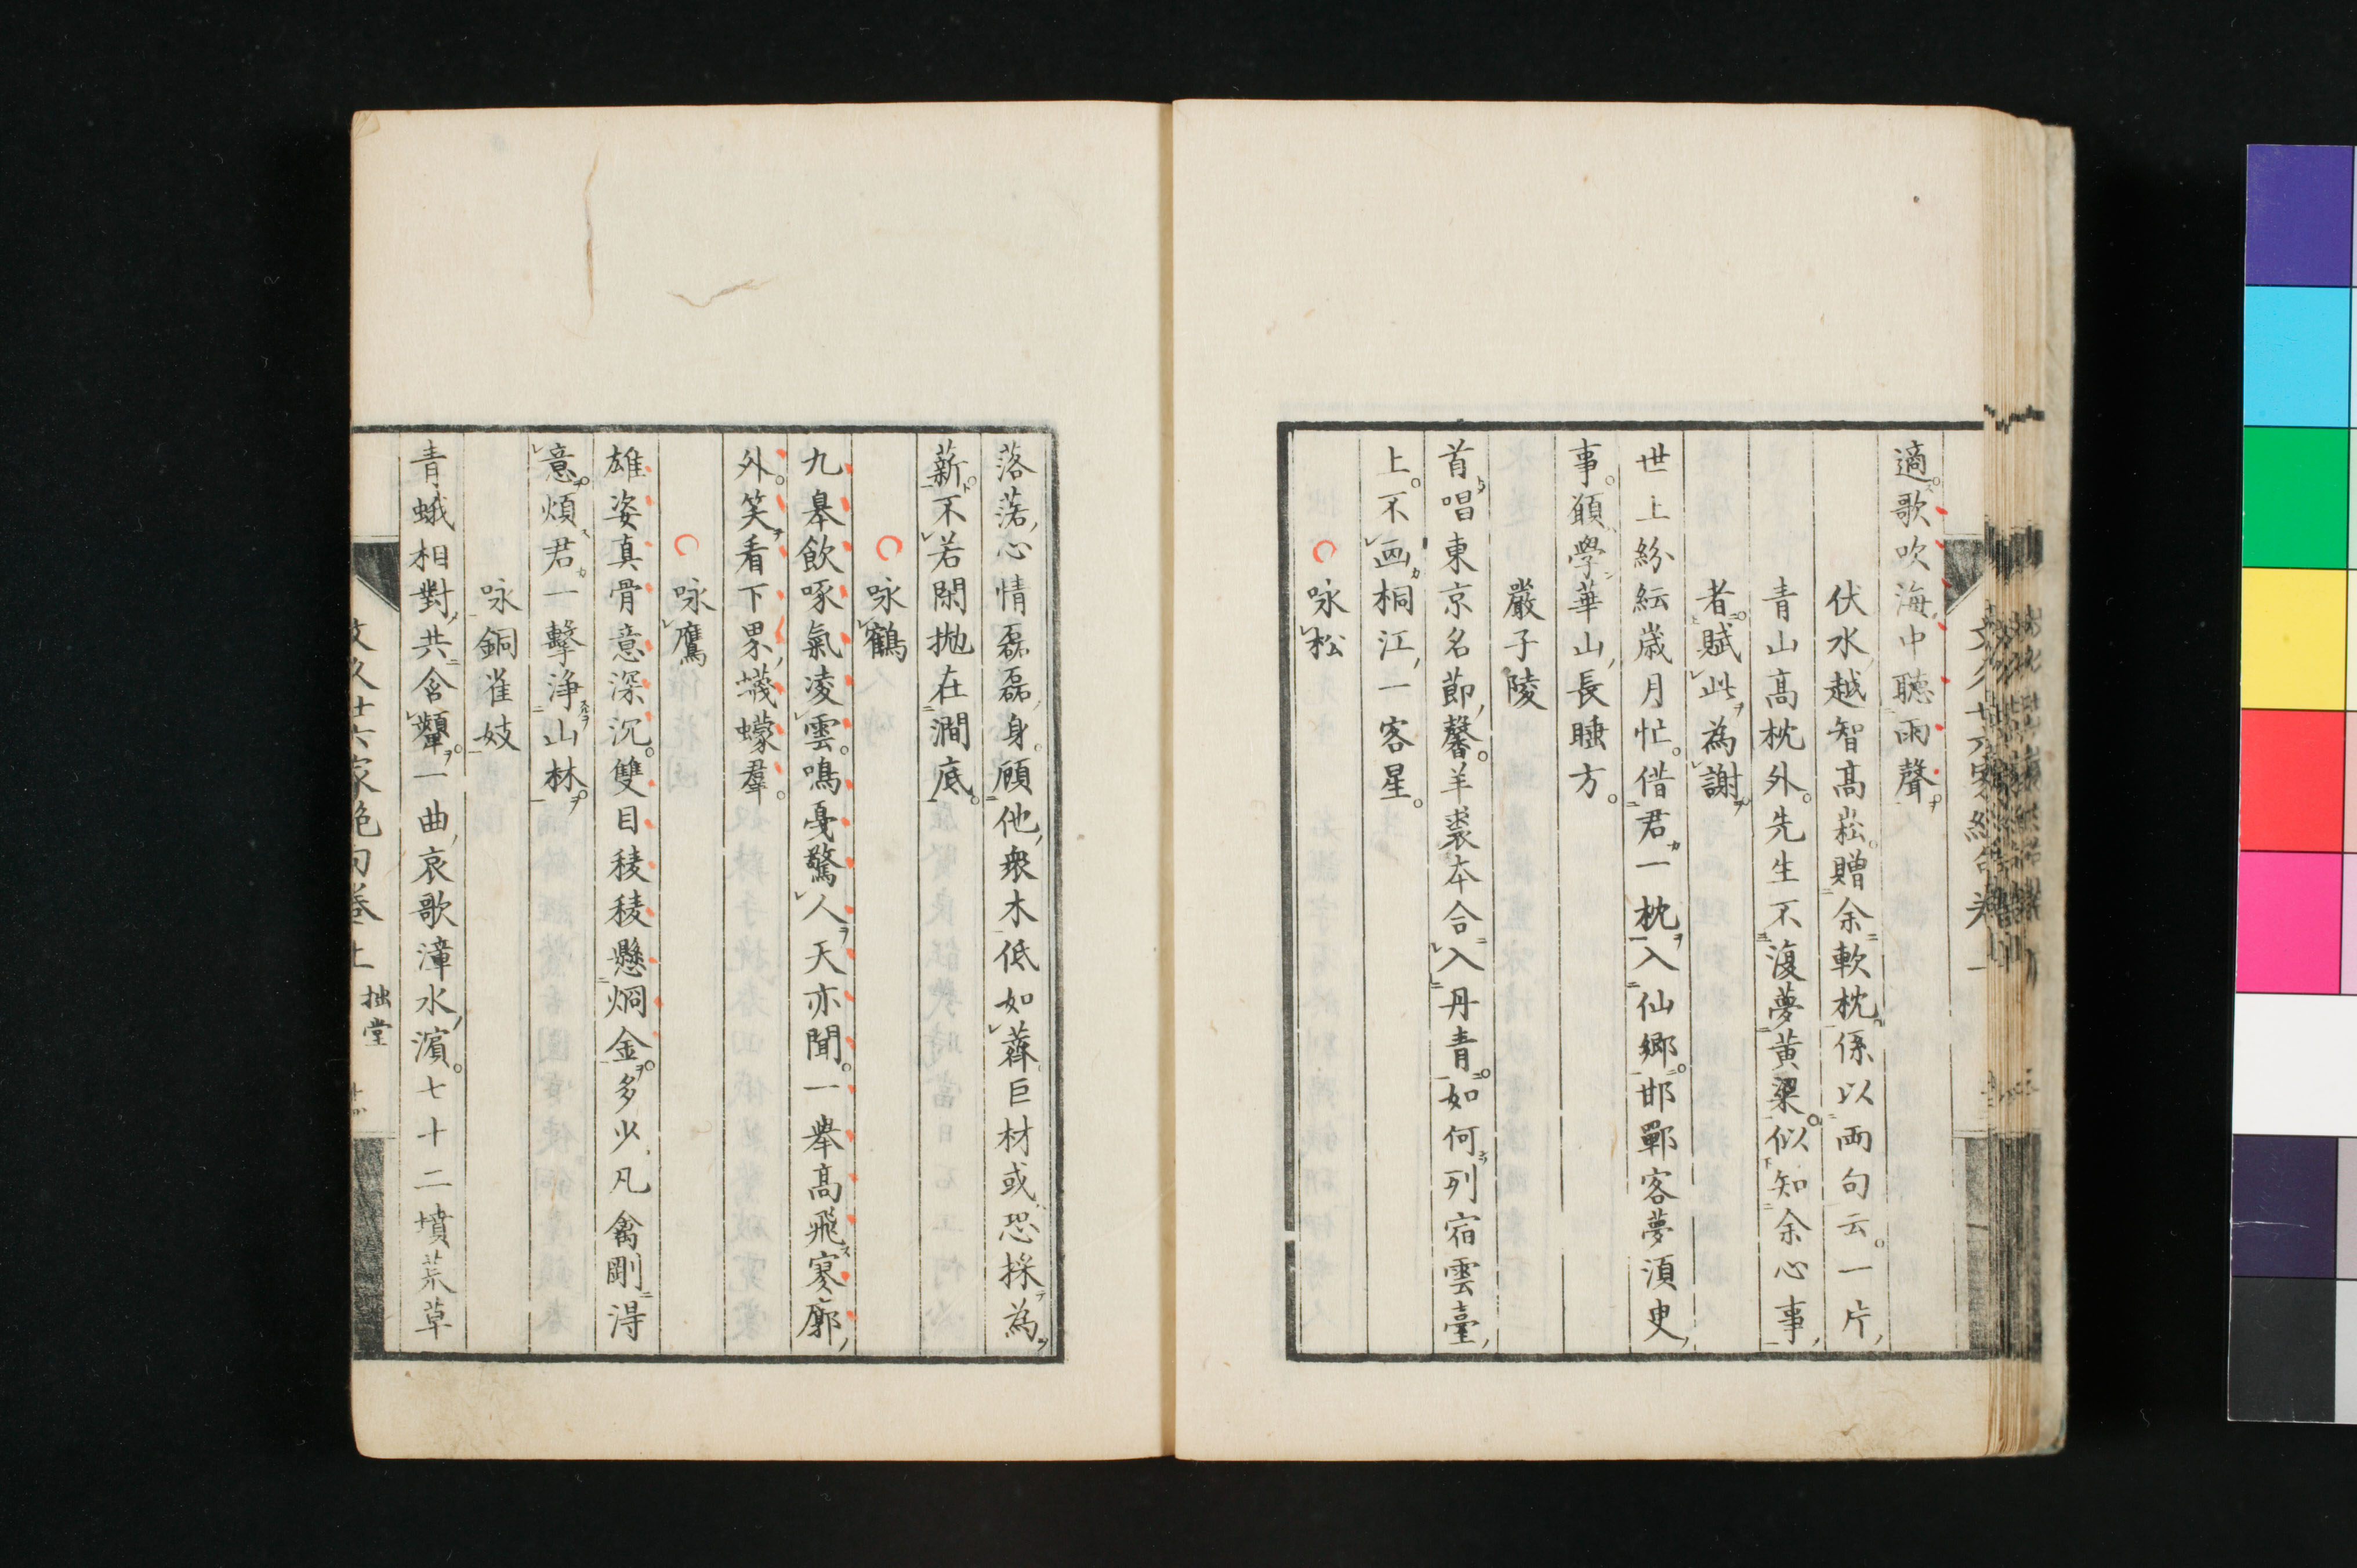 適歌吹海中聽雨聲
伏水越智高崧贈余軟枕係以両句云一片
青山高枕外先生不復夢黄粱似知余心事
者賦此為謝
世上紛紜歳月忙借君一枕入仙郷邯鄲客夢須臾
事願學華山長睡方
嚴子陵
首唱東京名節馨羊裘本合入丹青如何列宿雲臺
上不画桐江一客星
咏松
落落心情磊磊身顧他衆木低如薺巨材或恐採為
薪不若閑抛在澗底
咏鶴
九皋飲啄氣凌雲鳴戛驚人天亦聞一舉高飛寥廓
外笑看下界蠛蠓羣
咏鷹
雄姿真骨意深沉雙目稜稜懸烱金多少凡禽剛得
意煩君一擊浄山林
咏銅雀妓
青蛾相對共含顰一曲哀歌漳水濱七十二墳荒草
文久廿六家絶句巻上 拙堂